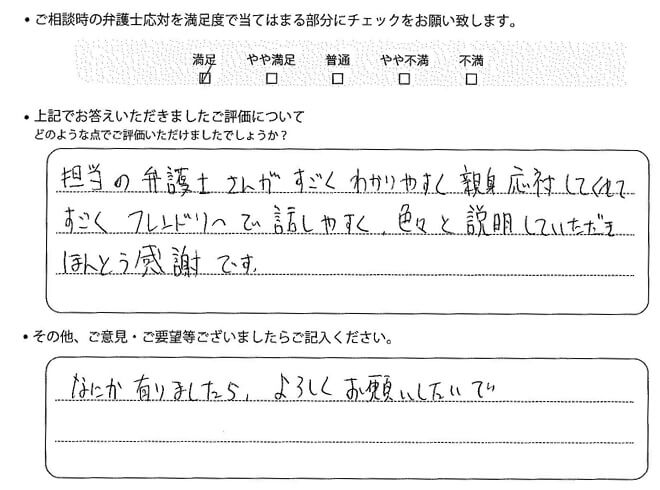 ・ご相談時の弁護士応対を満足度で当てはまる部分にチェックをお願い致します。
満足 やや満足 普通 やや不満 不満
・上記でお答えいただきましたご評価について
どのような点でご評価いただけましたでしょうか？
担当の弁護士さんがすごくわかりやすく親身応対してくれて
すごくフレンドリーで話しやすく、色々と説明していただき
ほんとう感謝です。
・その他、ご意見・ご要望等ございましたらご記入ください。
なにか有りましたら、よろしくお願いしたいで